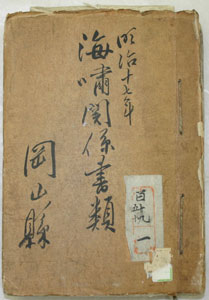 明治十七年
海嘯関係書類
岡山縣
一